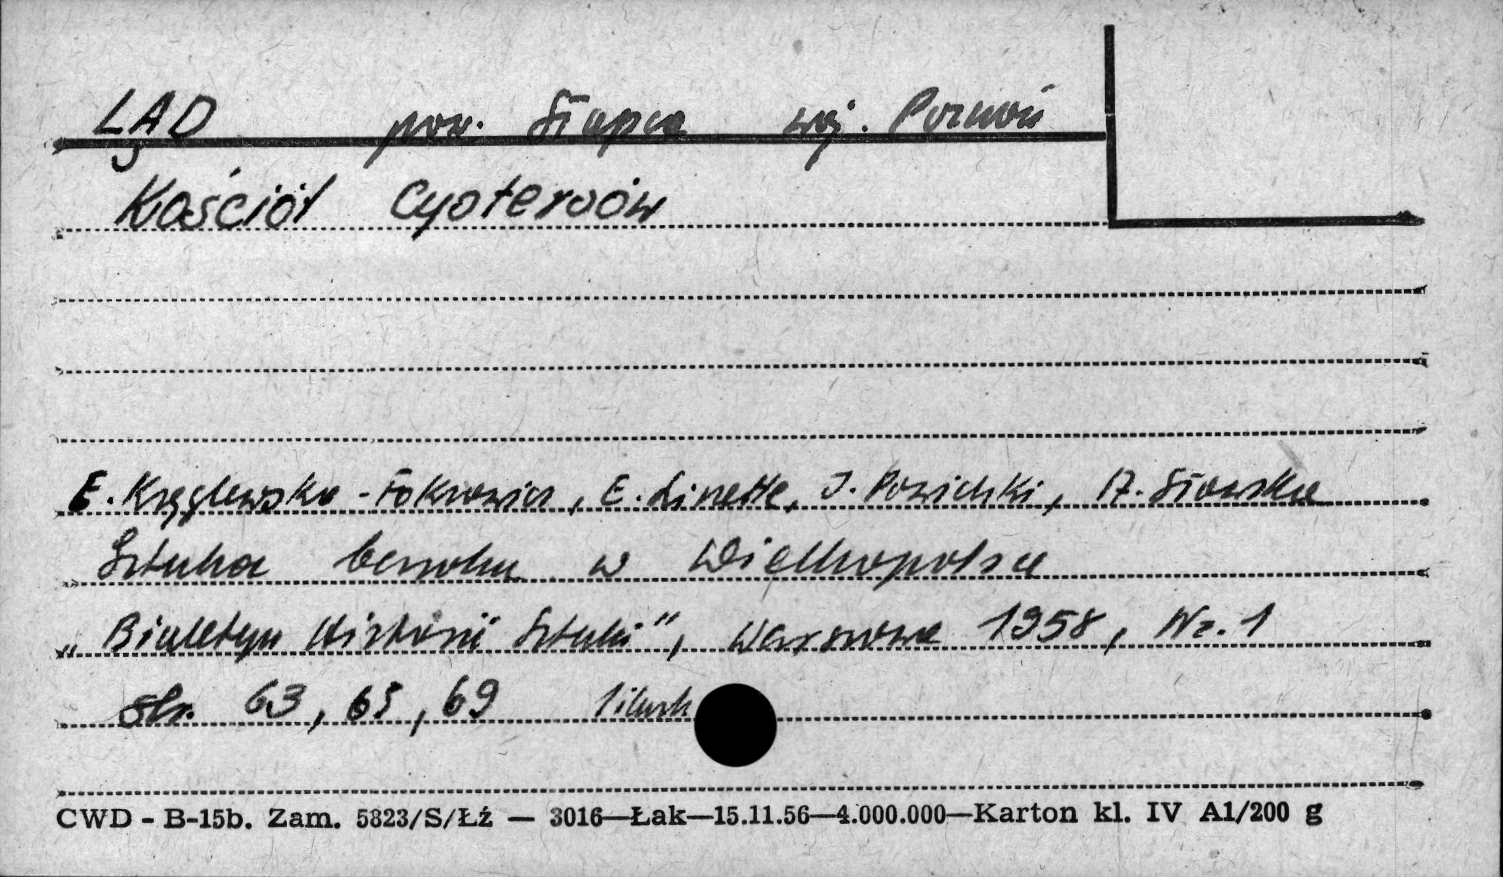 LĄD pow. Słupca woj. Poznań
Kościół Cystersów
E. Kręglewska-Fokrowicz, E. Linette, J. Powidzki, A. Sławska
Sztuka baroku w Wielkopolsce
„Biuletyn Historii Sztuki", Warszawa 1958, Nr. 1
str. 63, 65, 69 1 ilustr
CWD - B-15b. Zam. 5823/S/Łź — 3016—Łak—15.11.56—4.000.000—Karton kl. IV A1/200 g